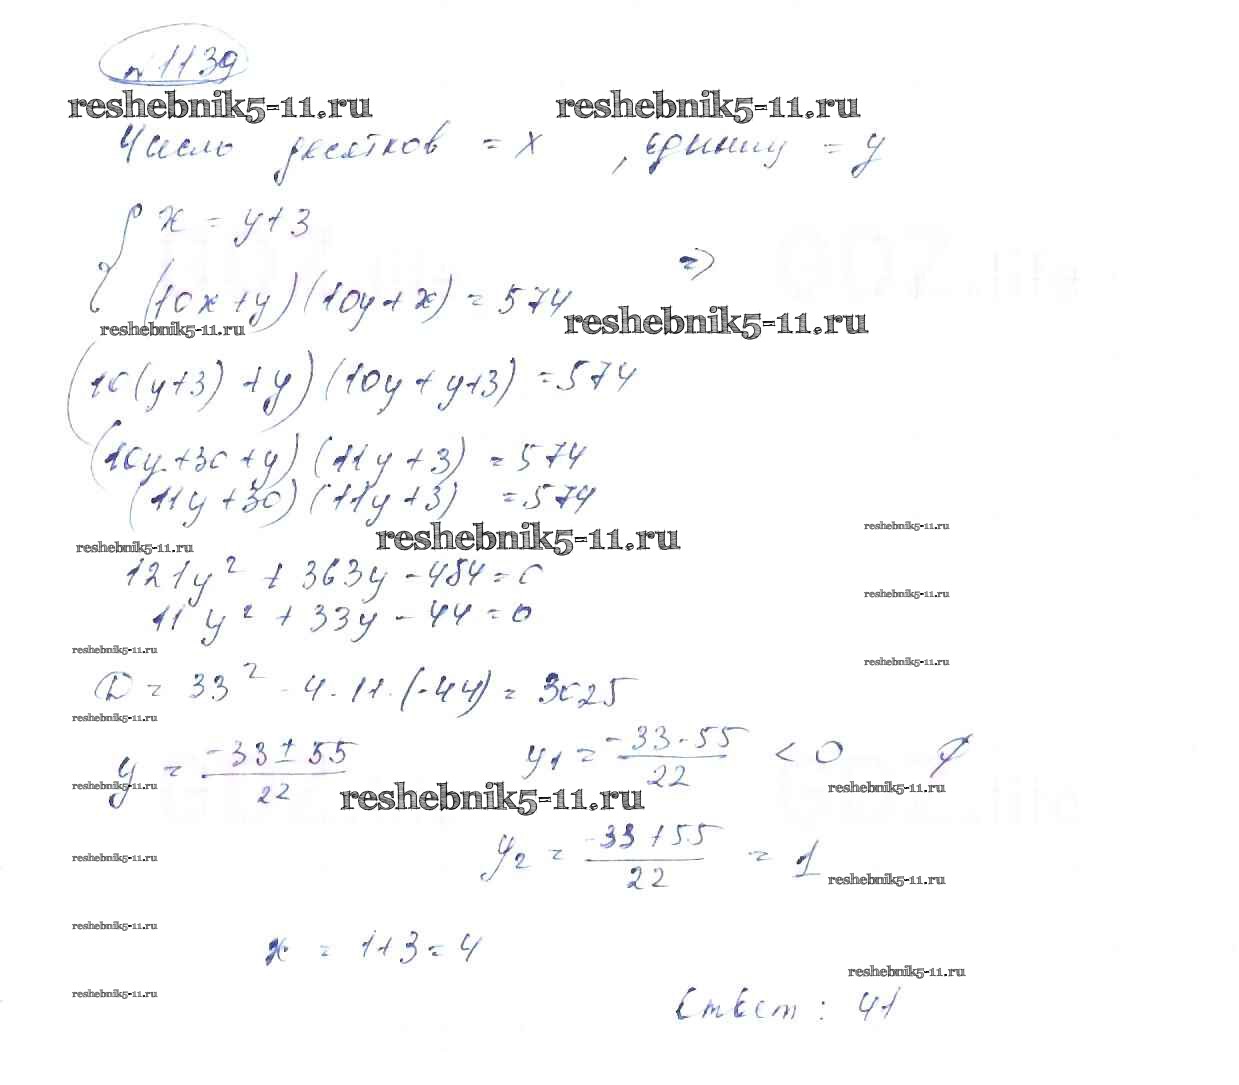 №1139
reshebnik5-11.ru reshebnik5-11.ru
Число десятков = x , единиц = y
{ x = y+3
(10x+y)(10y+x) = 574 =>
reshebnik5-11.ru reshebnik5-11.ru
(10(y+3)+y)(10y+y+3) = 574
(10y+30+y)(11y+3) = 574
(11y+30)(11y+3) = 574
reshebnik5-11.ru
reshebnik5-11.ru reshebnik5-11.ru
121y² + 363y - 484 = 0
reshebnik5-11.ru
11y² + 33y - 44 = 0
reshebnik5-11.ru reshebnik5-11.ru
D = 33² - 4·11·(-44) = 3025
reshebnik5-11.ru
y = (-33±55)/22 y₁ = (-33-55)/22 < 0 ∅
reshebnik5-11.ru reshebnik5-11.ru reshebnik5-11.ru
y₂ = (-33+55)/22 = 1
reshebnik5-11.ru reshebnik5-11.ru
reshebnik5-11.ru
x = 1+3 = 4
reshebnik5-11.ru reshebnik5-11.ru
Ответ: 41